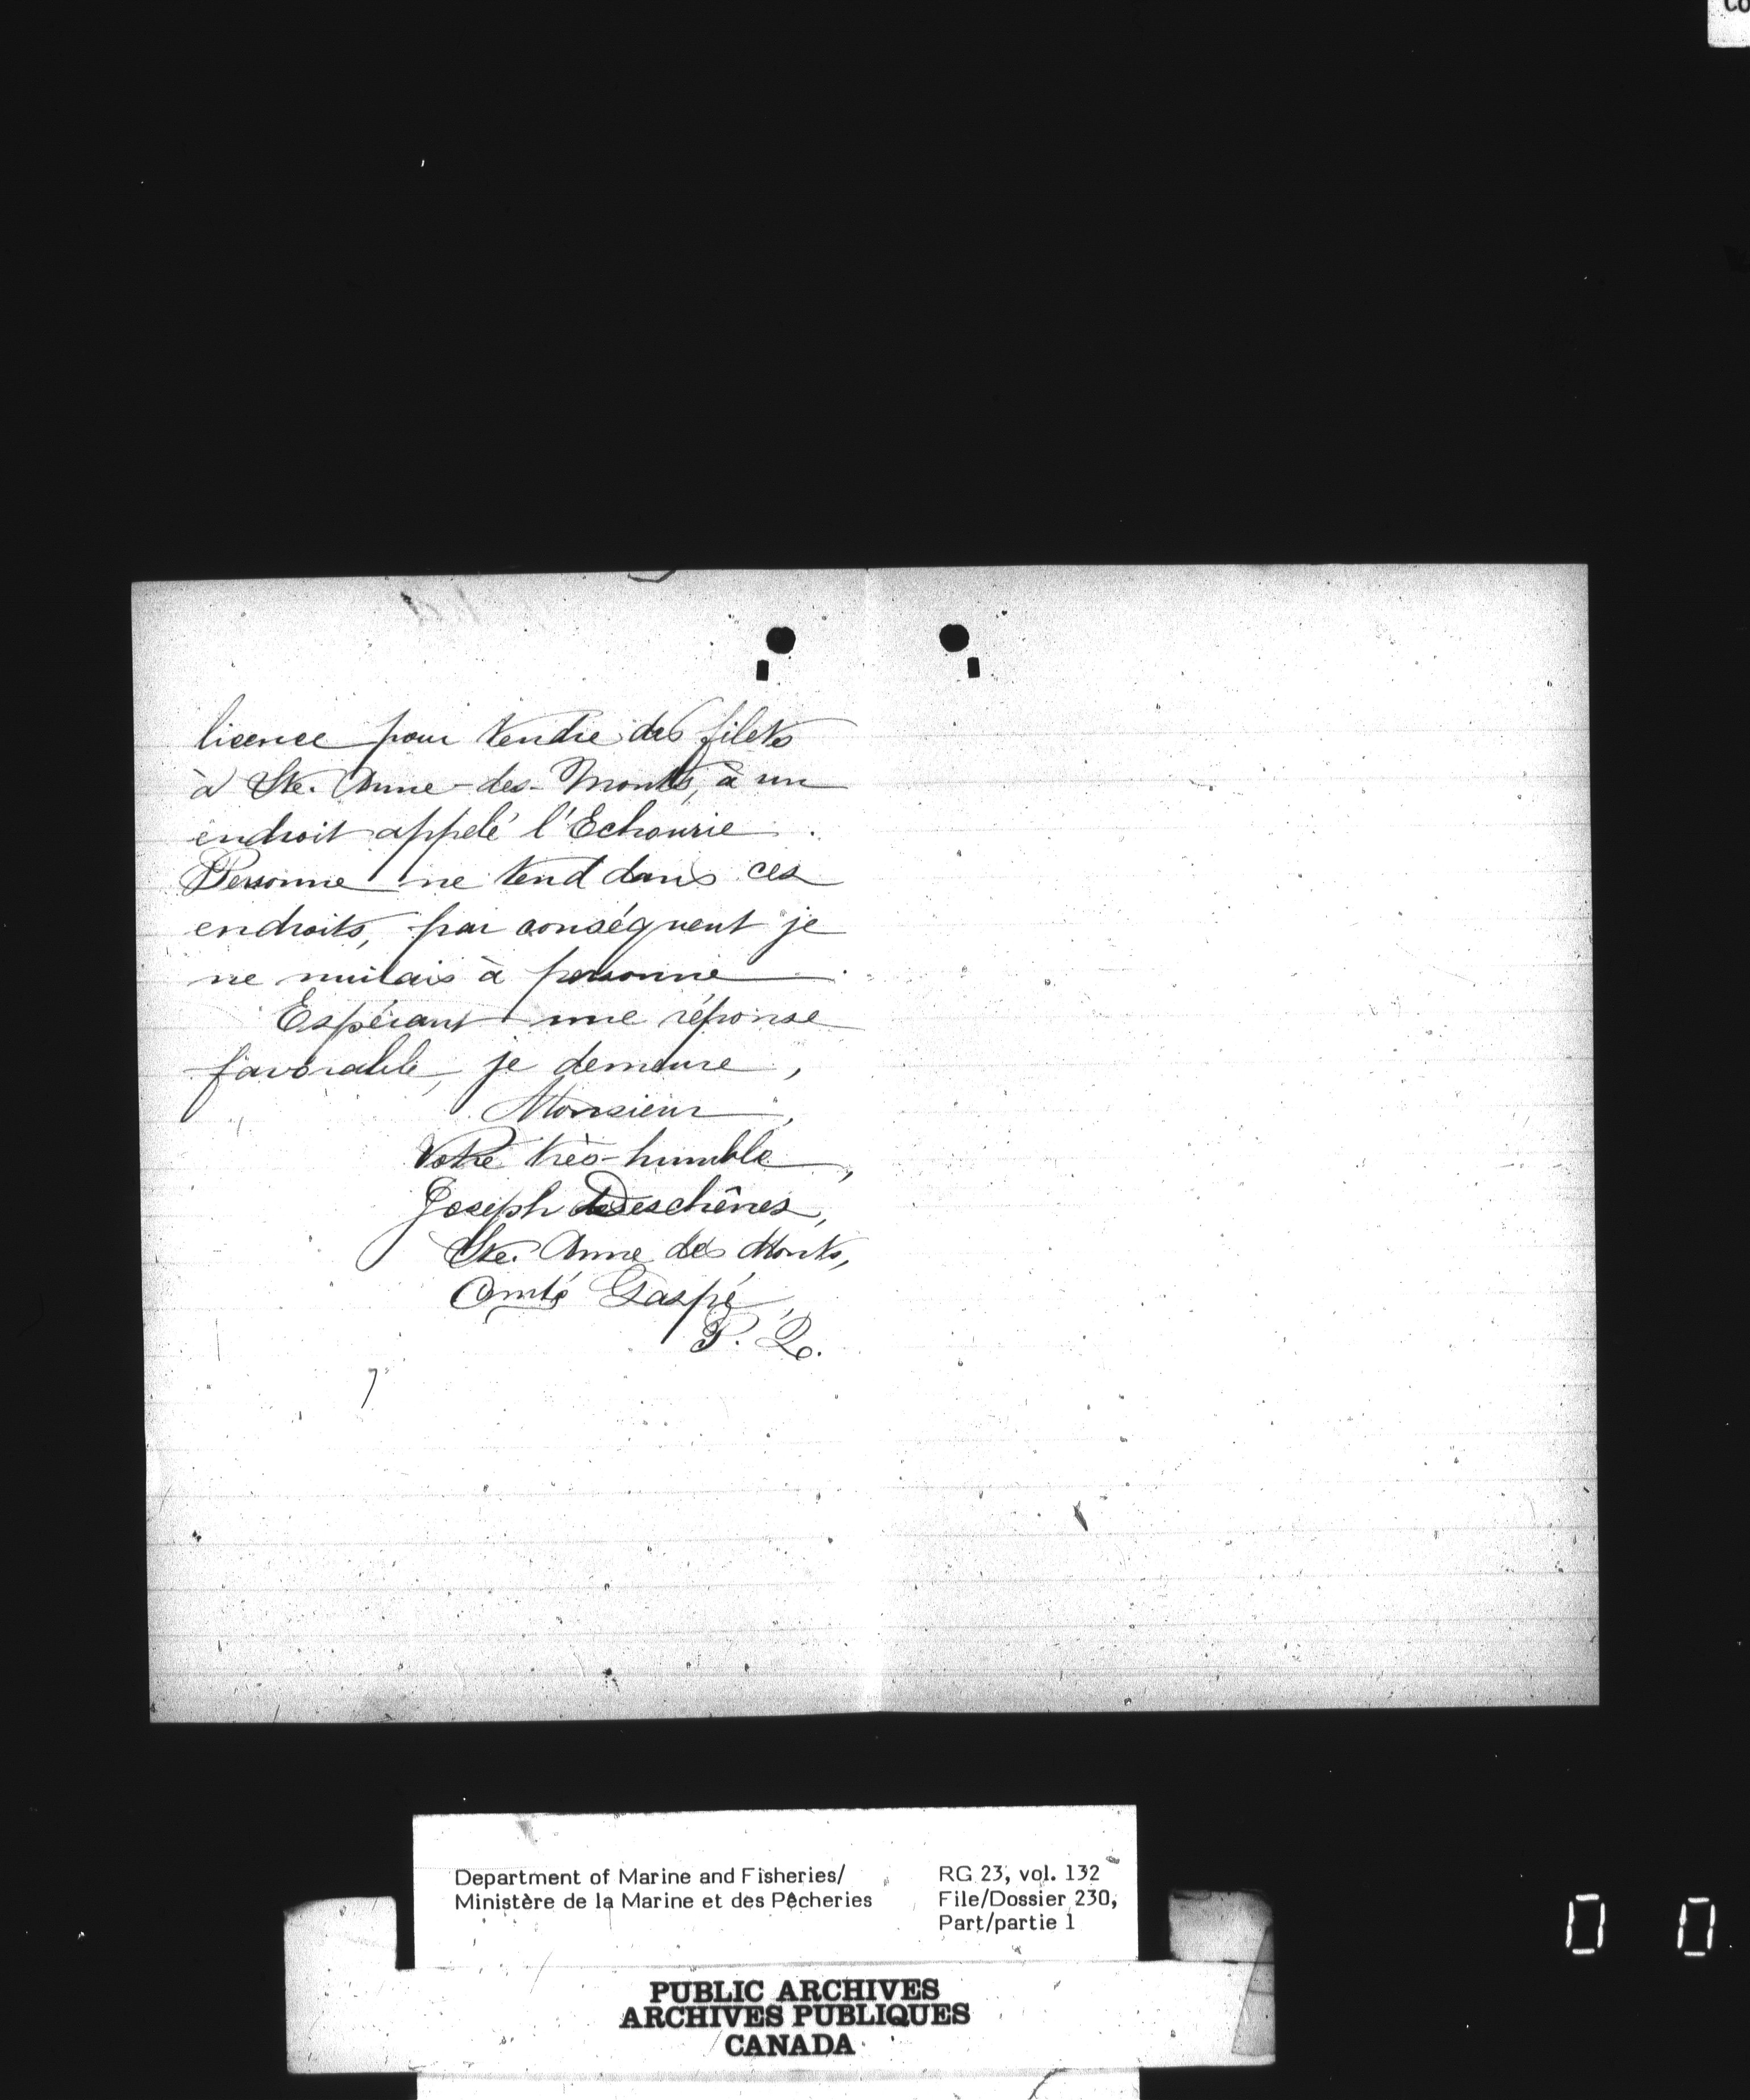 licence pour tendre des filets
à Ste. Anne-des-Monts, à un
endroit appelé l'Echourie.
Personne ne tend dans ces
endroits, par conséquent je
ne nuilais à personne.
Espérant une réponse
favorable, je demeure,
Monsieur,
Votre très-humble,
Joseph Deschênes,
Ste. Anne des Monts,
Comté Gaspé,
P. Q.
Department of Marine and Fisheries/
Ministère de la Marine et des Pêcheries
RG 23, vol. 132
File/Dossier 230,
Part/partie 1
PUBLIC ARCHIVES
ARCHIVES PUBLIQUES
CANADA
0 0